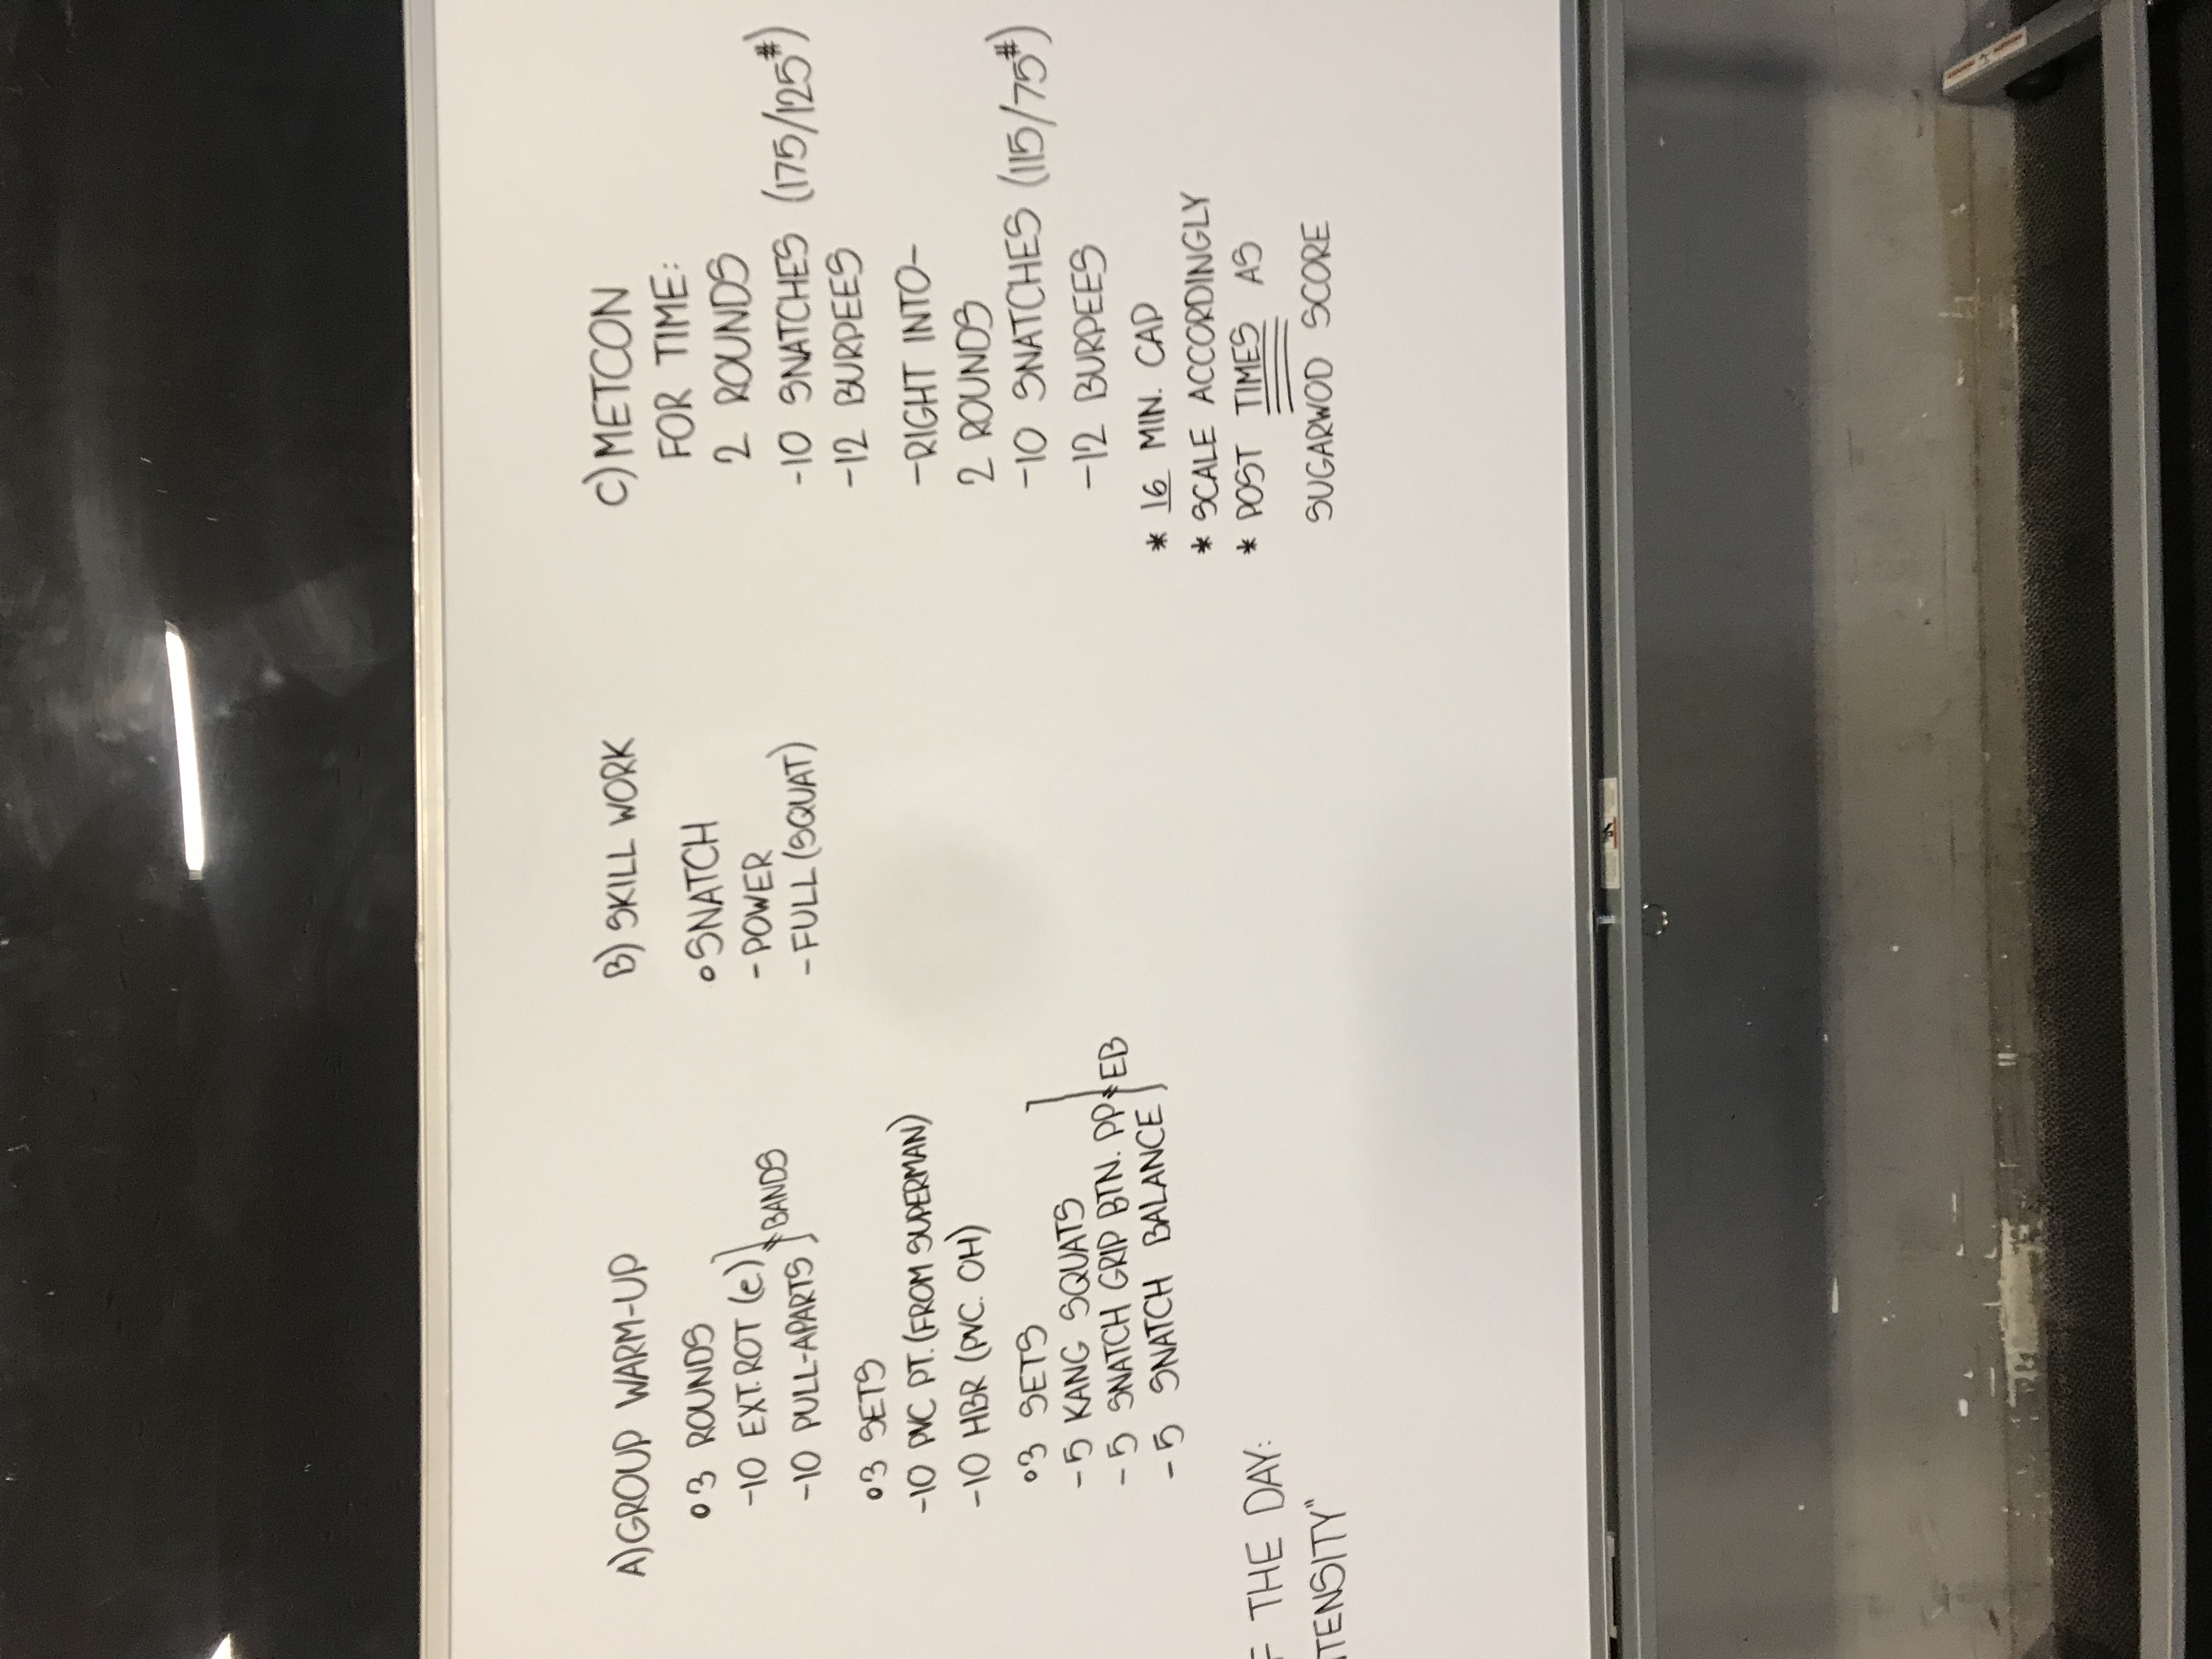 A) GROUP WARM-UP
° 3 ROUNDS
-10 EXT. ROT (e.)
-10 PULL-APARTS
* BANDS
° 3 SETS
-10 PVC PT. (FROM SUPERMAN)
-10 HBR (PVC. OH)
° 3 SETS
-5 KANG SQUATS
-5 SNATCH GRIP BTN. PP
-5 SNATCH BALANCE
* EB
F THE DAY:
TENSITY"
B) SKILL WORK
° SNATCH
- POWER
- FULL (SQUAT)
C) METCON
FOR TIME:
2 ROUNDS
-10 SNATCHES (175/125#)
-12 BURPEES
-RIGHT INTO-
2 ROUNDS
-10 SNATCHES (115/75#)
-12 BURPEES
* 16 MIN. CAP
* SCALE ACCORDINGLY
* POST TIMES AS
SUGARWOD SCORE